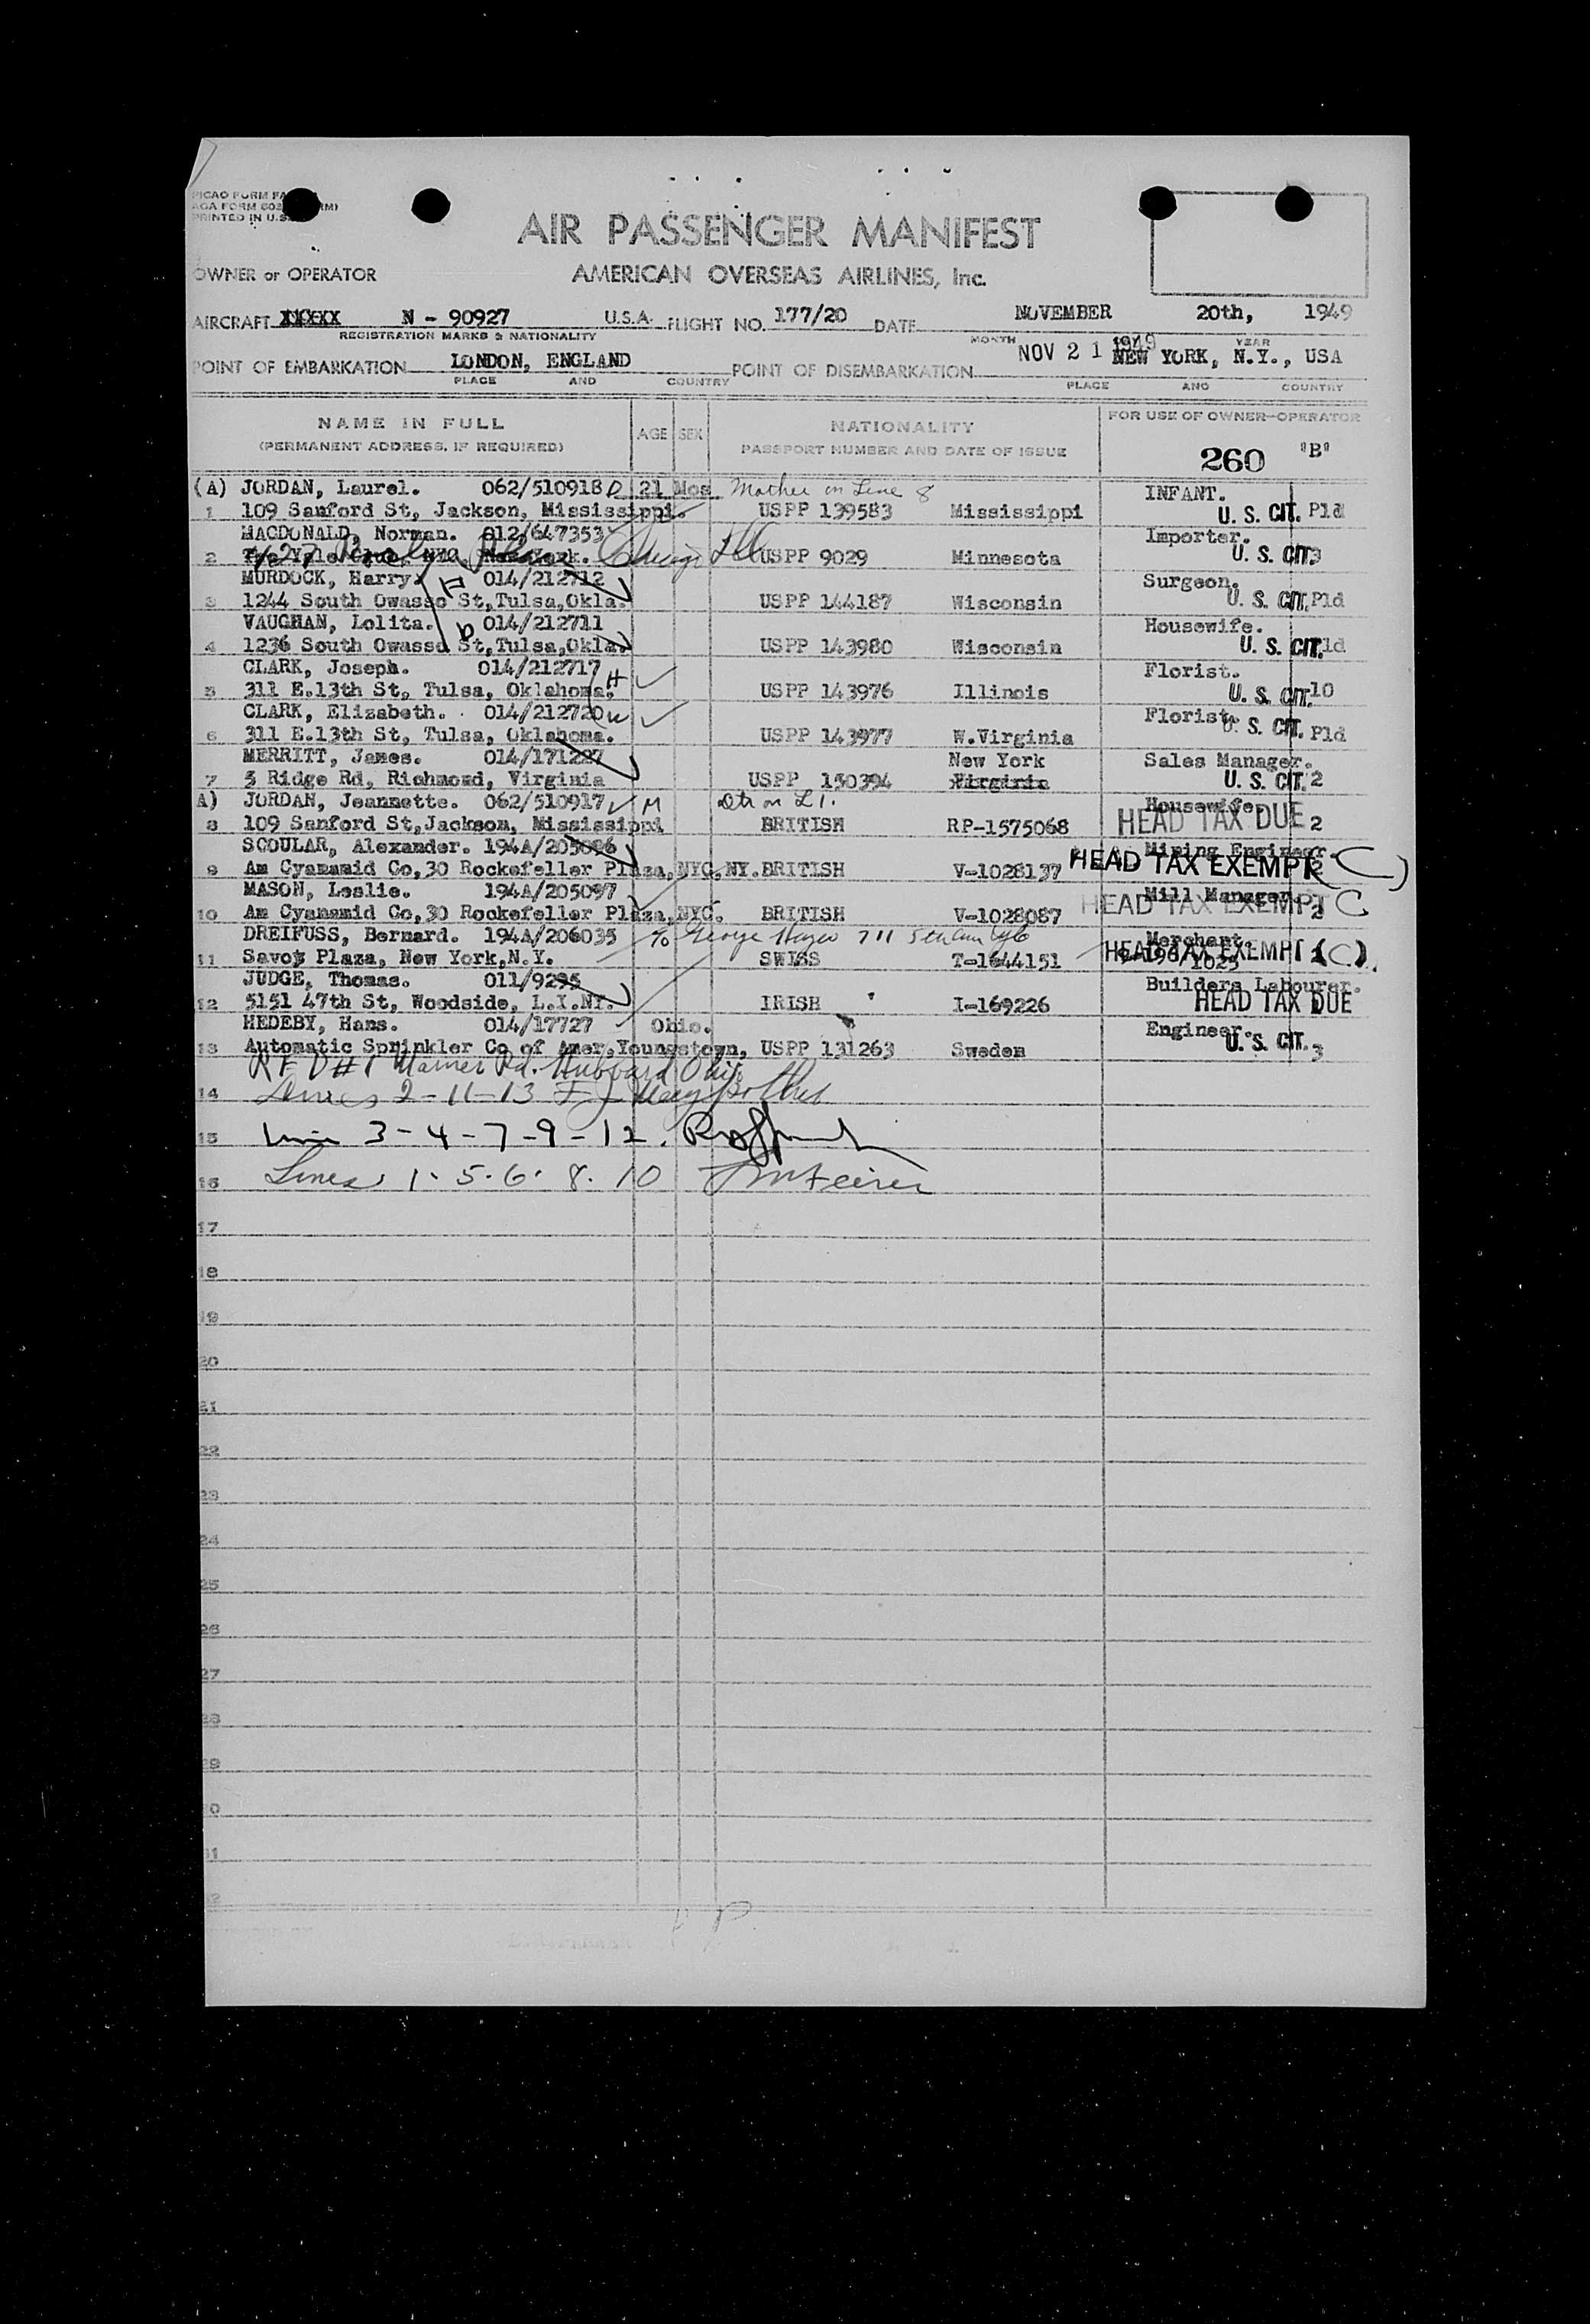 PRINTED IN U.S.
AIR PASSENGER MANIFEST
OWNER or OPERATOR AMERICAN OVERSEAS AIRLINES, Inc.
AIRCRAFT XXXXX N - 90927 U.S.A. FLIGHT NO. 177/20 DATE NOVEMBER 20th, 1949
REGISTRATION MARKS & NATIONALITY MONTH YEAR
NOV 21 1949
POINT OF EMBARKATION LONDON, ENGLAND POINT OF DISEMBARKATION NEW YORK, N.Y., USA
PLACE AND COUNTRY PLACE AND COUNTRY
NAME IN FULL AGE SEX NATIONALITY FOR USE OF OWNER-OPERATOR
(PERMANENT ADDRESS, IF REQUIRED) PASSPORT NUMBER AND DATE OF ISSUE
260 "B"
(A) JORDAN, Laurel. 062/510918 D 21 Mos Mother on Line 8 INFANT.
1 109 Sanford St, Jackson, Mississippi. USPP 139583 Mississippi U. S. CIT. Pld
MACDONALD, Norman. 012/647353 Importer.
2 USPP 9029 Minnesota U. S. CIT.
MURDOCK, Harry. 014/212712 Surgeon.
3 1244 South Owasso St, Tulsa, Okla. USPP 144187 Wisconsin U. S. CIT. Pld
VAUGHAN, Lolita. 014/212711 Housewife.
4 1236 South Owasso St, Tulsa, Okla. USPP 143980 Wisconsin U. S. CIT. ld
CLARK, Joseph. 014/212717 H Florist.
5 311 E.13th St, Tulsa, Oklahoma. USPP 143976 Illinois U. S. CIT. 10
CLARK, Elizabeth. 014/212720 W Florist.
6 311 E.13th St, Tulsa, Oklahoma. USPP 143977 W.Virginia U. S. CIT. Pld
MERRITT, James. 014/171227 New York Sales Manager.
7 3 Ridge Rd, Richmond, Virginia USPP 150394 Virginia U. S. CIT. 2
A) JORDAN, Jeannette. 062/510917 M Dtr on L 1. Housewife.
8 109 Sanford St, Jackson, Mississippi BRITISH RP-1575068 HEAD TAX DUE 2
SCOULAR, Alexander. 194A/205096 Mining Engineer.
9 Am Cyanamid Co, 30 Rockefeller Plaza, NYC, NY. BRITISH V-1028137 HEAD TAX EXEMPT (C)
MASON, Leslie. 194A/205097 Mill Manager.
10 Am Cyanamid Co, 30 Rockefeller Plaza, NYC. BRITISH V-1028087 HEAD TAX EXEMPT C
DREIFUSS, Bernard. 194A/206035 c/o George Merchant.
11 Savoy Plaza, New York, N.Y. SWISS T-1644151 HEAD TAX EXEMPT (C)
JUDGE, Thomas. 011/9295 Builders Labourer.
12 5151 47th St, Woodside, L.I.NY. IRISH I-169226 HEAD TAX DUE
HEDEBY, Hans. 014/17727 Ohio. Engineer.
13 Automatic Sprinkler Co of Amer, Youngstown, USPP 131263 Sweden U. S. CIT. 3
R F D #1 Warner Rd. Hubbard Ohio
14 Lines 2-11-13
15 Line 3-4-7-9-12.
16 Lines 1. 5. 6. 8. 10
17
18
19
20
21
22
23
24
25
26
27
28
29